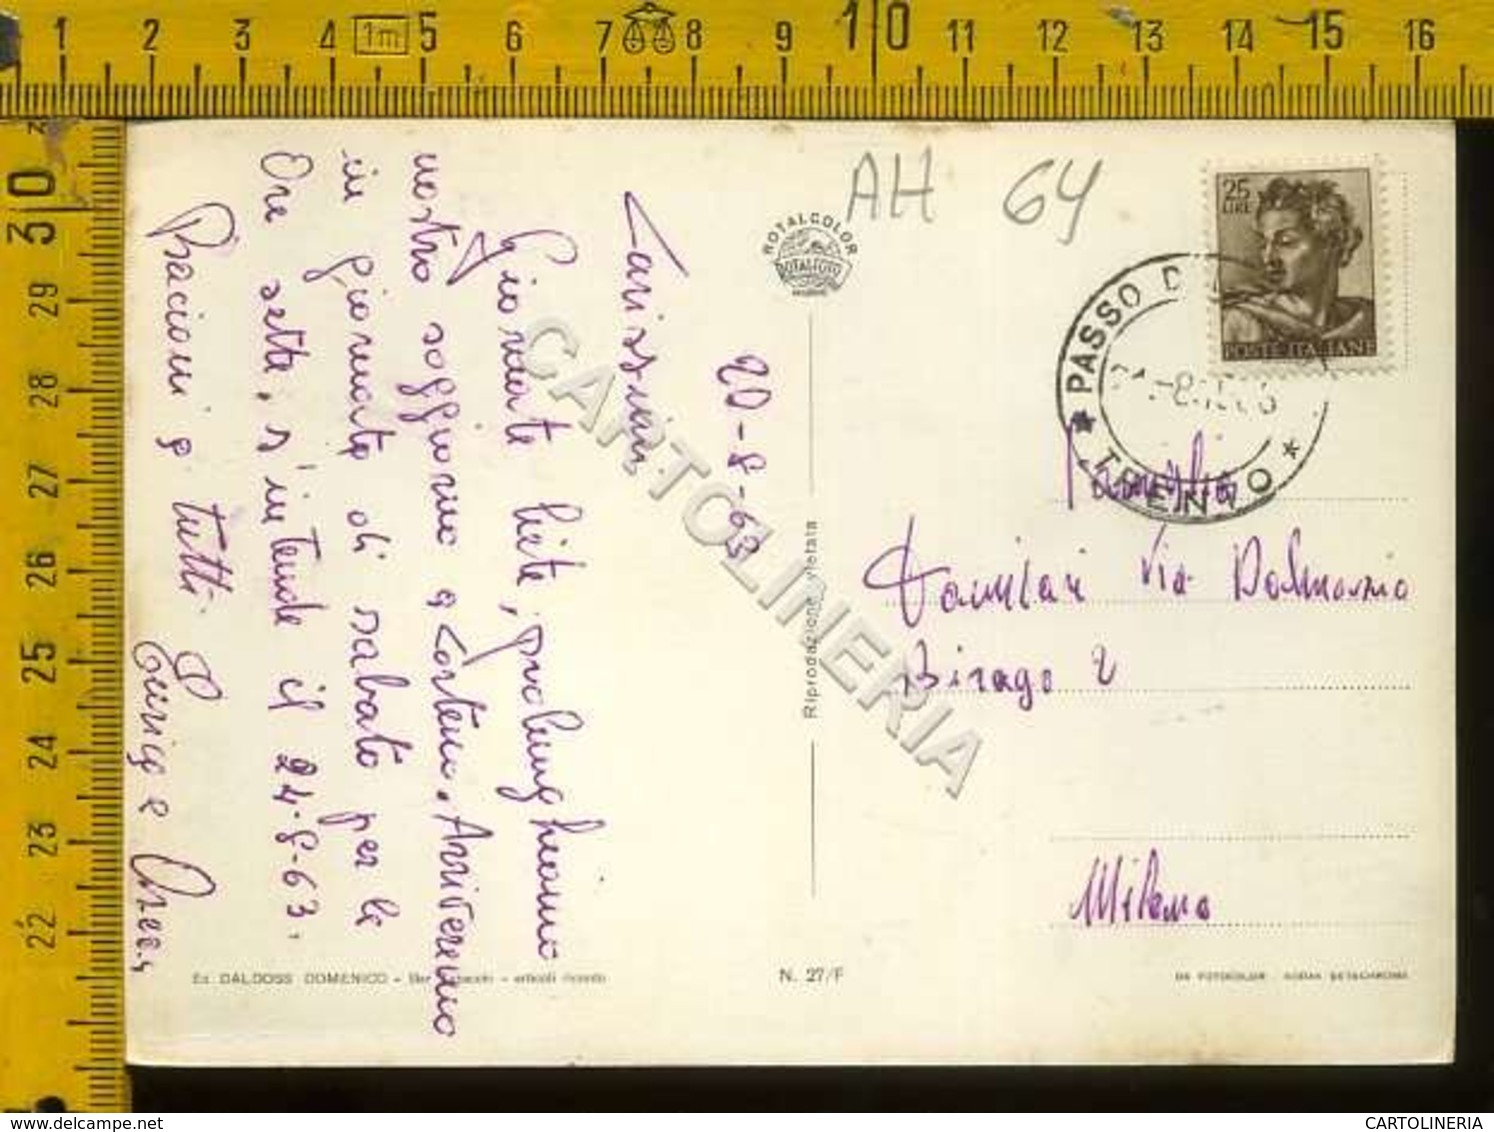 1 2 3 4 1m 5 6 7 8 9 10 11 12 13 14 15 16
30
29
28
27
26
25
24
23
22
AH 64
ROTALCOLOR
ROTALFOTO
25
LIRE
POSTE ITALIANE
PASSO D
* TRENTO *
20-8-63
Carissimi
Giornate liete, prolunghiamo
nostro soggiorno a Corteno. Arriveremo
in giornata di sabato per le
Ore sette, s'intende il 24-8-63.
Bacioni a tutti
Famiglia
Via Dalmazio
Birago 2
Milano
Riproduzione vietata
Ed. DALDOSS DOMENICO - Bar - articoli ricordo
N. 27/F
DA FOTOCOLOR KODAK EKTACHROME
CARTOLINERIA
delcampe.net
CARTOLINERIA